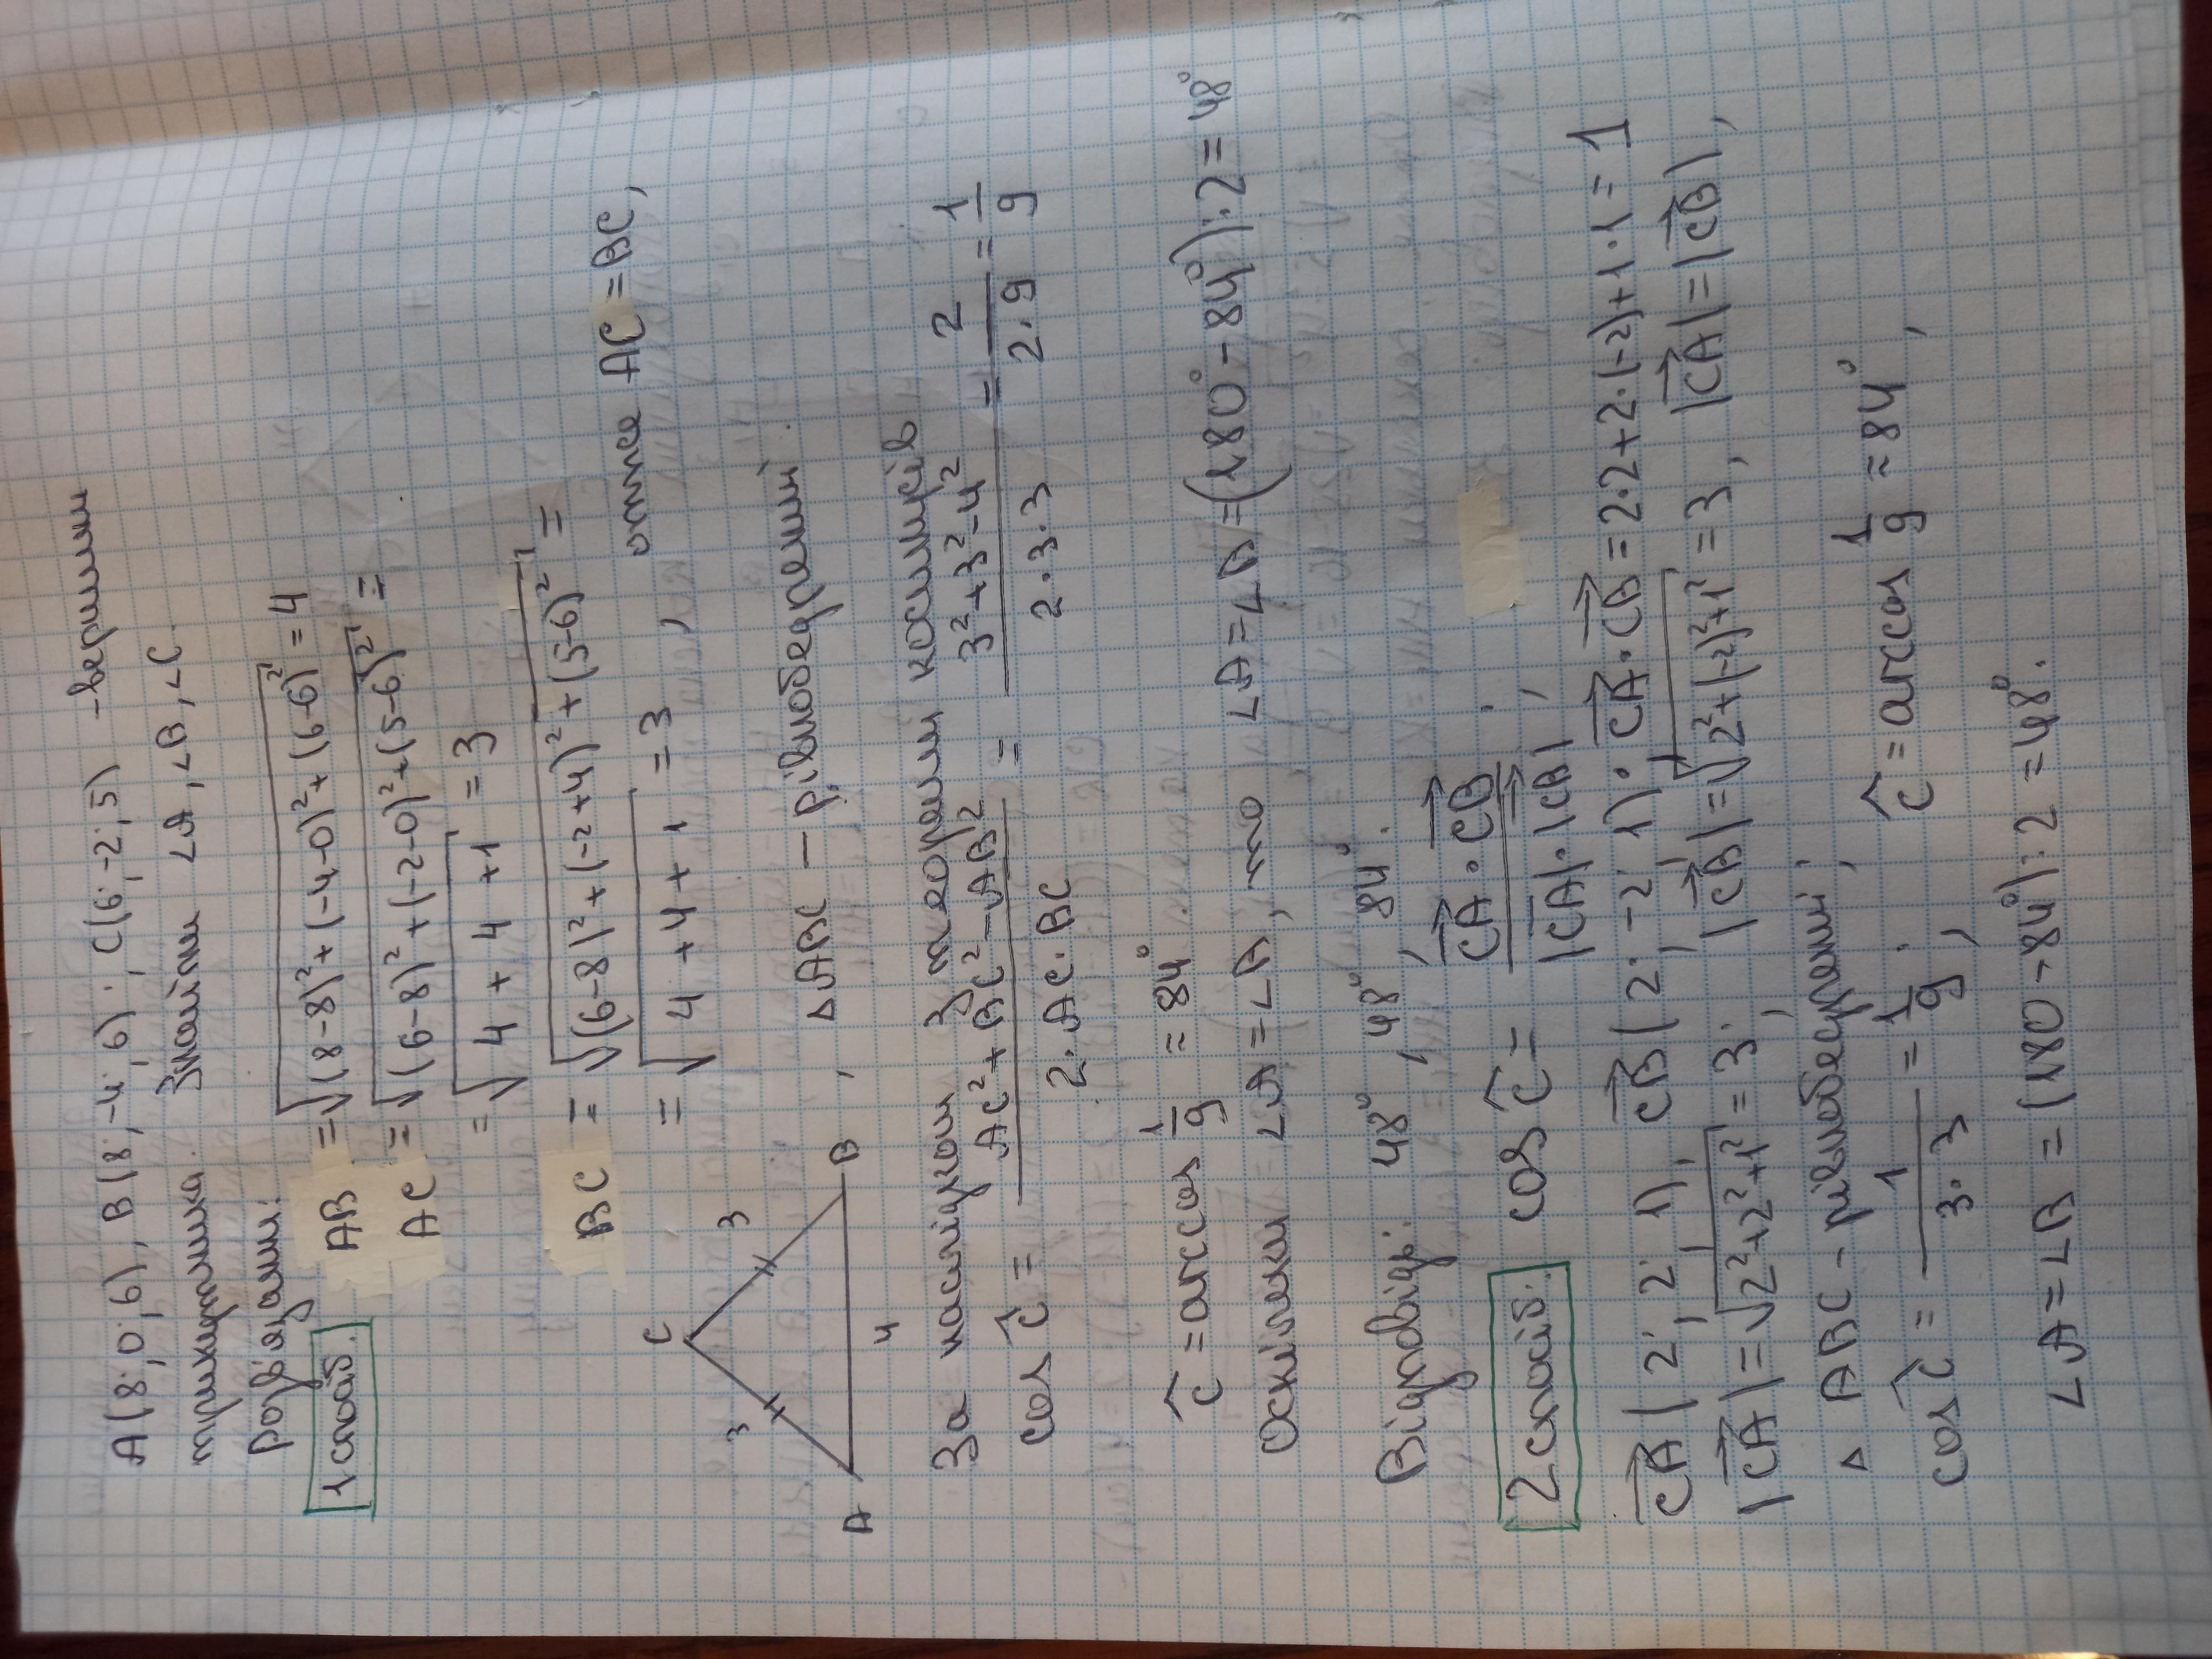 A(8;0;6), B(8;-4;6); C(6;-2;5) - вершини
трикутника. Знайти ∠A, ∠B, ∠C.
Розв'язання:
1 спосіб. AB = √((8-8)²+(-4-0)²+(6-6)²) = 4
AC = √((6-8)²+(-2-0)²+(5-6)²) =
= √(4+4+1) = 3
BC = √((6-8)²+(-2+4)²+(5-6)²) =
= √(4+4+1) = 3, отже AC=BC,
C
3 3
A 4 B, ΔABC – рівнобедрений.
За наслідком з теореми косинусів
cos Ĉ = (AC²+BC²-AB²)/(2·AC·BC) = (3²+3²-4²)/(2·3·3) = 2/(2·9) = 1/9
Ĉ = arccos 1/9 ≈ 84°
Оскільки ∠A=∠B, то ∠A=∠B=(180°-84°):2=48°
Відповідь: 48°, 48°, 84°.
2 спосіб. cos Ĉ = (CA⃗·CB⃗)/(|CA⃗|·|CB⃗|);
CA⃗(2; 2; 1), CB⃗(2; -2; 1); CA⃗·CB⃗=2·2+2·(-2)+1·1=1
|CA⃗|=√(2²+2²+1²)=3; |CB⃗|=√(2²+(-2)²+1²)=3, |CA⃗|=|CB⃗|,
Δ ABC - рівнобедрений;
cos Ĉ = 1/(3·3) = 1/9; Ĉ=arccos 1/9 ≈ 84°,
∠A=∠B = (180-84°):2 =48°.